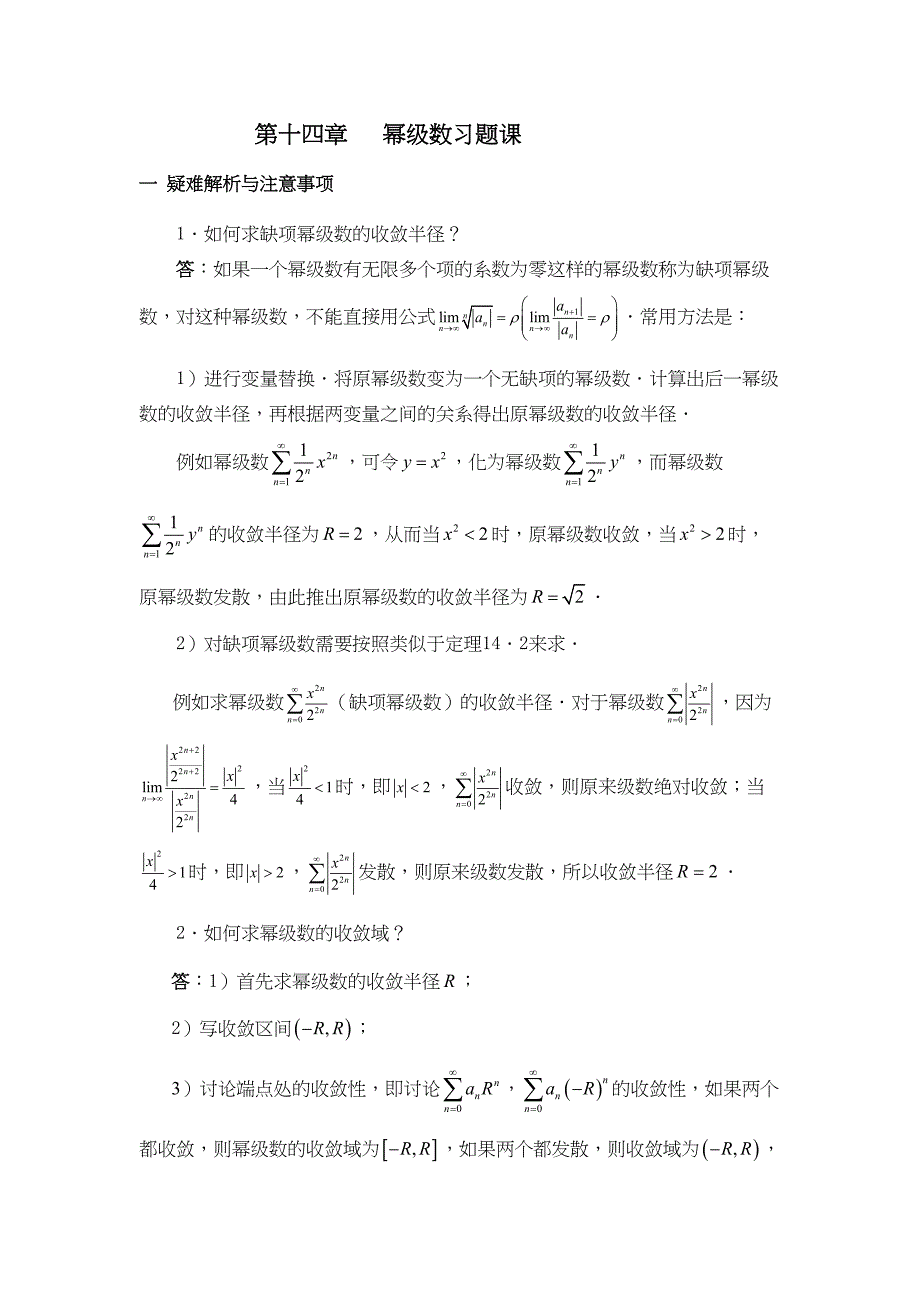 第十四章 幂级数习题课
一 疑难解析与注意事项
1．如何求缺项幂级数的收敛半径？
答：如果一个幂级数有无限多个项的系数为零这样的幂级数称为缺项幂级
数，对这种幂级数，不能直接用公式$\lim_{n\to\infty}\sqrt[n]{|a_n|}=\rho\left(\lim_{n\to\infty}\frac{|a_{n+1}|}{|a_n|}=\rho\right)$．常用方法是：
1）进行变量替换．将原幂级数变为一个无缺项的幂级数．计算出后一幂级
数的收敛半径，再根据两变量之间的关系得出原幂级数的收敛半径．
例如幂级数$\sum_{n=1}^{\infty}\frac{1}{2^n}x^{2n}$，可令$y=x^2$，化为幂级数$\sum_{n=1}^{\infty}\frac{1}{2^n}y^n$，而幂级数
$\sum_{n=1}^{\infty}\frac{1}{2^n}y^n$的收敛半径为$R=2$，从而当$x^2<2$时，原幂级数收敛，当$x^2>2$时，
原幂级数发散，由此推出原幂级数的收敛半径为$R=\sqrt{2}$．
2）对缺项幂级数需要按照类似于定理14．2来求．
例如求幂级数$\sum_{n=0}^{\infty}\frac{x^{2n}}{2^{2n}}$（缺项幂级数）的收敛半径．对于幂级数$\sum_{n=0}^{\infty}\left|\frac{x^{2n}}{2^{2n}}\right|$，因为
$\lim_{n\to\infty}\frac{\left|\frac{x^{2n+2}}{2^{2n+2}}\right|}{\left|\frac{x^{2n}}{2^{2n}}\right|}=\frac{|x|^2}{4}$，当$\frac{|x|^2}{4}<1$时，即$|x|<2$，$\sum_{n=0}^{\infty}\left|\frac{x^{2n}}{2^{2n}}\right|$收敛，则原来级数绝对收敛；当
$\frac{|x|^2}{4}>1$时，即$|x|>2$，$\sum_{n=0}^{\infty}\left|\frac{x^{2n}}{2^{2n}}\right|$发散，则原来级数发散，所以收敛半径$R=2$．
2．如何求幂级数的收敛域？
答：1）首先求幂级数的收敛半径$R$；
2）写收敛区间$(-R,R)$；
3）讨论端点处的收敛性，即讨论$\sum_{n=0}^{\infty}a_nR^n$，$\sum_{n=0}^{\infty}a_n(-R)^n$的收敛性，如果两个
都收敛，则幂级数的收敛域为$[-R,R]$，如果两个都发散，则收敛域为$(-R,R)$，